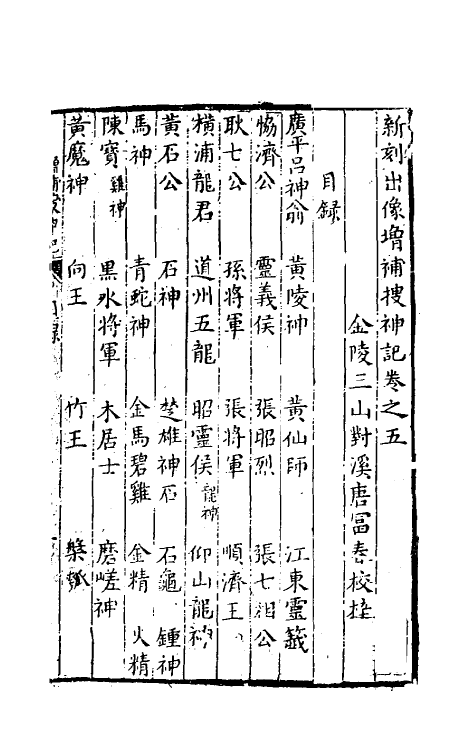 新刻出像增補搜神記卷之五
金陵三山對溪唐富春校梓
目録
廣平呂神翁 黃陵神 黃仙師 江東靈籤
恊濟公 靈義侯 張昭烈 張七相公
耿七公 孫將軍 張將軍 順濟王
橫浦龍君 道州五龍 昭靈侯 龍神 仰山龍神
黃石公 石神 楚雄神石 石龜 鍾神
馬神 青蛇神 金馬碧雞 金精 火精
陳寳 雞神 黑水將軍 木居士 磨嵯神
黃魔神 向王 竹王 槃瓠